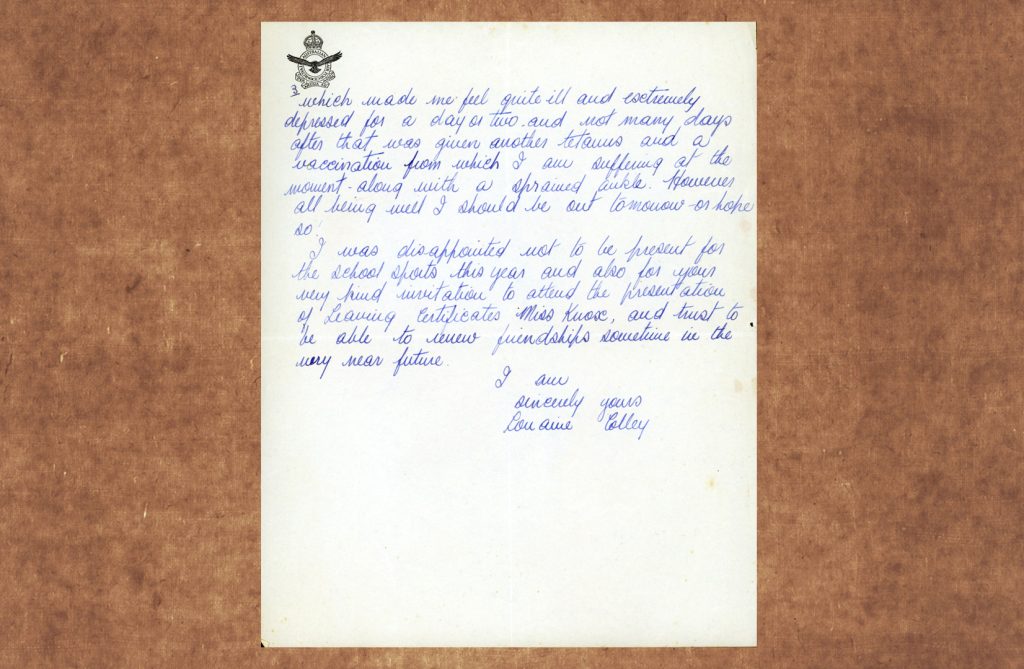 3
which made me feel quite ill and esctremely
depressed for a day or two and not many days
after that was given another tetanus and a
vaccination from which I am suffering at the
moment - along with a sprained ankle. However
all being well I should be out tomorrow - or hope
so!
I was disappointed not to be present for
the school sports this year and also for your
very kind invitation to attend the presentation
of Leaving Certificates Miss Knox, and trust to
be able to renew friendships sometime in the
very near future.
I am
sincerely yours
Lorraine Colley